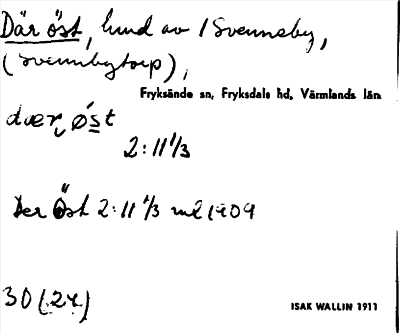 Där öst, hmd av /Svenneby,
(Svennbytorp),
Fryksände sn, Fryksdals hd, Värmlands län
dær øst
2:11 1/3
Der Öst 2:11 1/3 ml 1909
30 (27)
ISAK WALLIN 1911